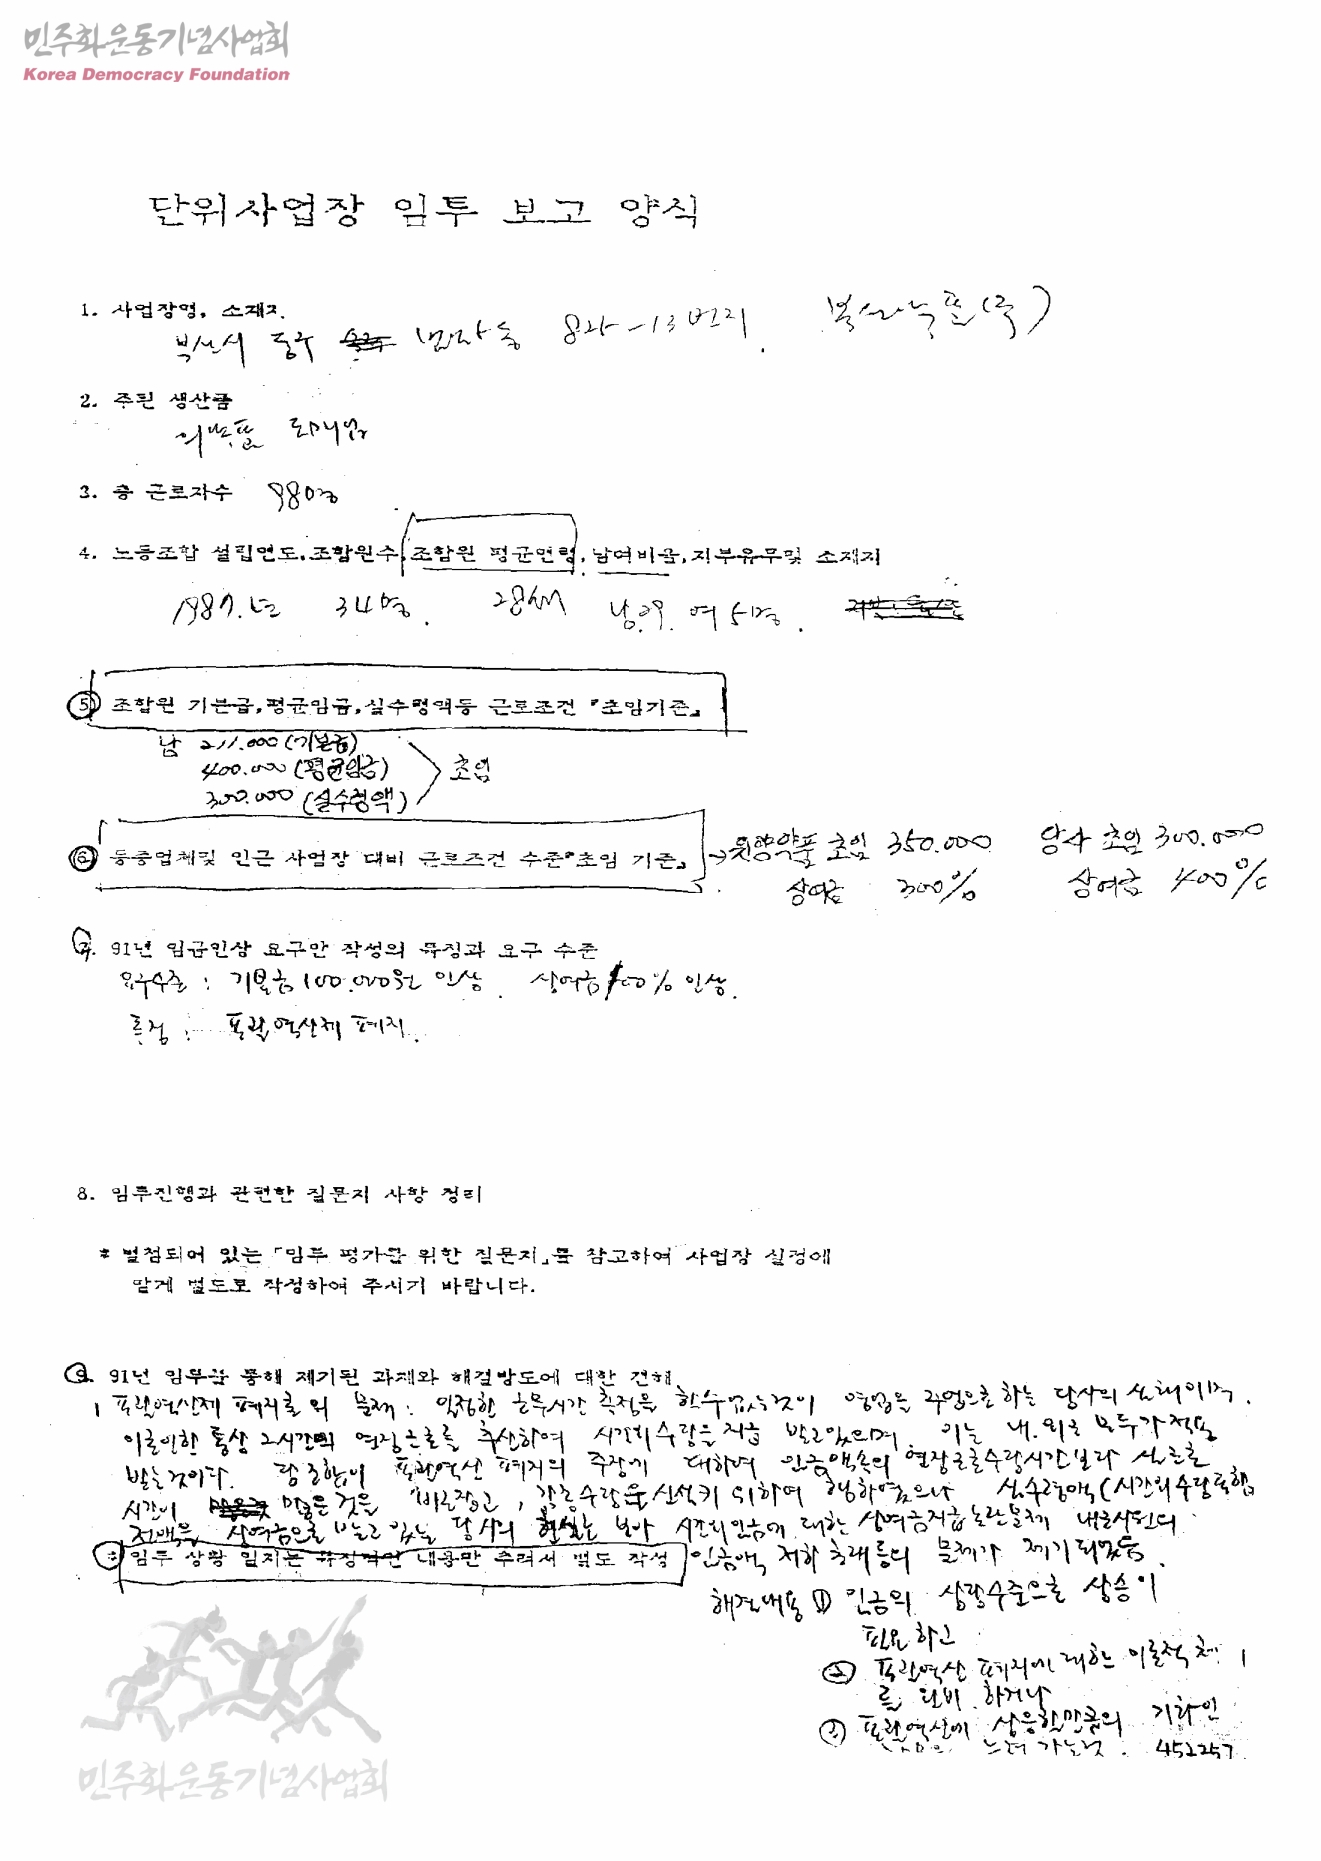 민주화운동기념사업회
Korea Democracy Foundation
단위사업장 임투 보고 양식
1. 사업장명, 소재지
부산시 동구 범일동 번지
2. 주된 생산품
의약품 도매업
3. 총 근로자수 980명
4. 노동조합 설립연도,조합원수,조합원 평균연령,남여비율,지부유무및 소재지
1987.년 34명. 28세 남.29. 여 5명.
5 조합원 기본급,평균임금,실수령액등 근로조건 『초임기준』
남 211.000 (기본급)
400.000 (평균임금) 초임
300.000 (실수령액)
6 동종업체및 인근 사업장 대비 근로조건 수준『초임 기준』 → 초임 350.000 당사 초임 300.000
상여금 300% 상여금 400%
7. 91년 임금인상 요구안 작성의 특징과 요구 수준
요구수준 : 기본급 100.000원 인상. 상여금 100% 인상.
특징 : 포괄역산제 폐지.
8. 임투진행과 관련한 질문지 사항 정리
* 별첨되어 있는 「임투 평가를 위한 질문지」를 참고하여 사업장 실정에
맞게 별도로 작성하여 주시기 바랍니다.
9. 91년 임투를 통해 제기된 과제와 해결방도에 대한 견해
1 포괄역산제 폐지로의 문제 : 일정한 근무시간 측정을 할수없는것이 영업을 주업으로 하는 당사의 실태이며.
이로인한 통상 2시간의 연장근로를 추산하여 시간외수당을 지급 받고있으며 이는 내.외근 모두가 적용
받는것이다. 당 조합이 포괄역산 폐지의 주장에 대하여 임금액속의 연장근로수당시간보다 실근로
시간이 많은 것을 바로잡고, 각종수당을 신설키 위하여 행하였으나 실수령액(시간외수당포함)
전액을 상여금으로 받고 있는 당사의 현실로 보아 시간외임금에 대한 상여금지급논란문제 내근사원의
* 임투 상황 일지는 특징적인 내용만 추려서 별도 작성 임금액 저하 초래등의 문제가 제기되었음.
해결내용 ① 임금의 상당수준으로 상승이
필요하고
② 포괄역산 폐지에 대한 이론적 체
를 완비 하거나
③ 포괄역산에 상응한만큼의
452257
민주화운동기념사업회